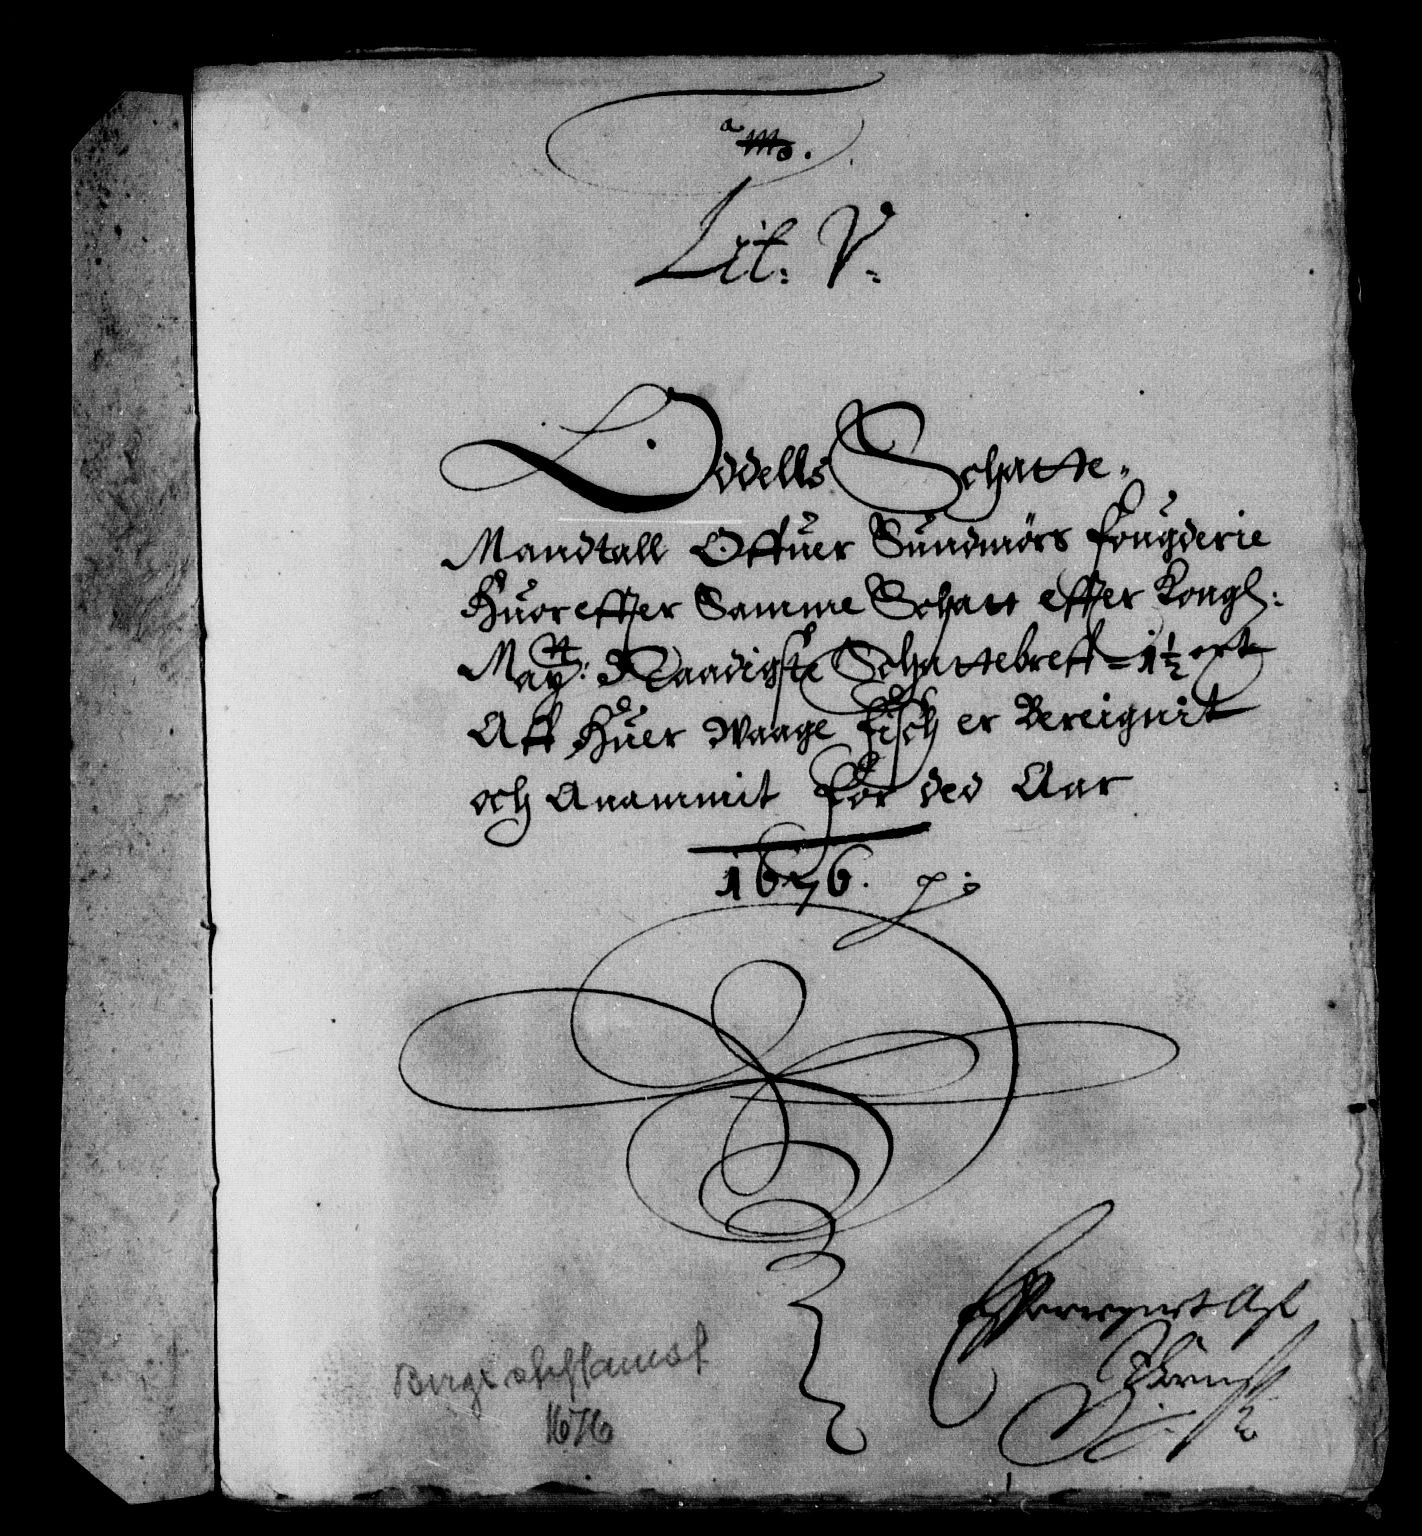 Lit: V:
Odells Schatte-
Mandtall Offuer Sundmörs fougderie
Huoreffter Samme Schatt effter Kongl:
Maytt: Naadigste Schattebreff = 1½ ort
Aff Huer Waage fisch er Bereignit
och Anammit for ded Aar
1676.
Bergs stiftamt
1676